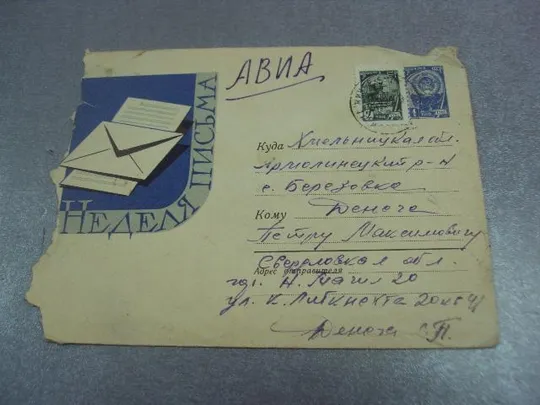 АВИА
НЕДЕЛЯ ПИСЬМА
Куда Хмельницкая обл.
Ярмолинецкий р-н
с. Березовка
Кому Деноча
Петру Максимовичу
Свердловская обл.
Адрес отправителя
гор. Н. Тагил 20
ул. К. Либкнехта 20 кв 41
Деноча С.П.